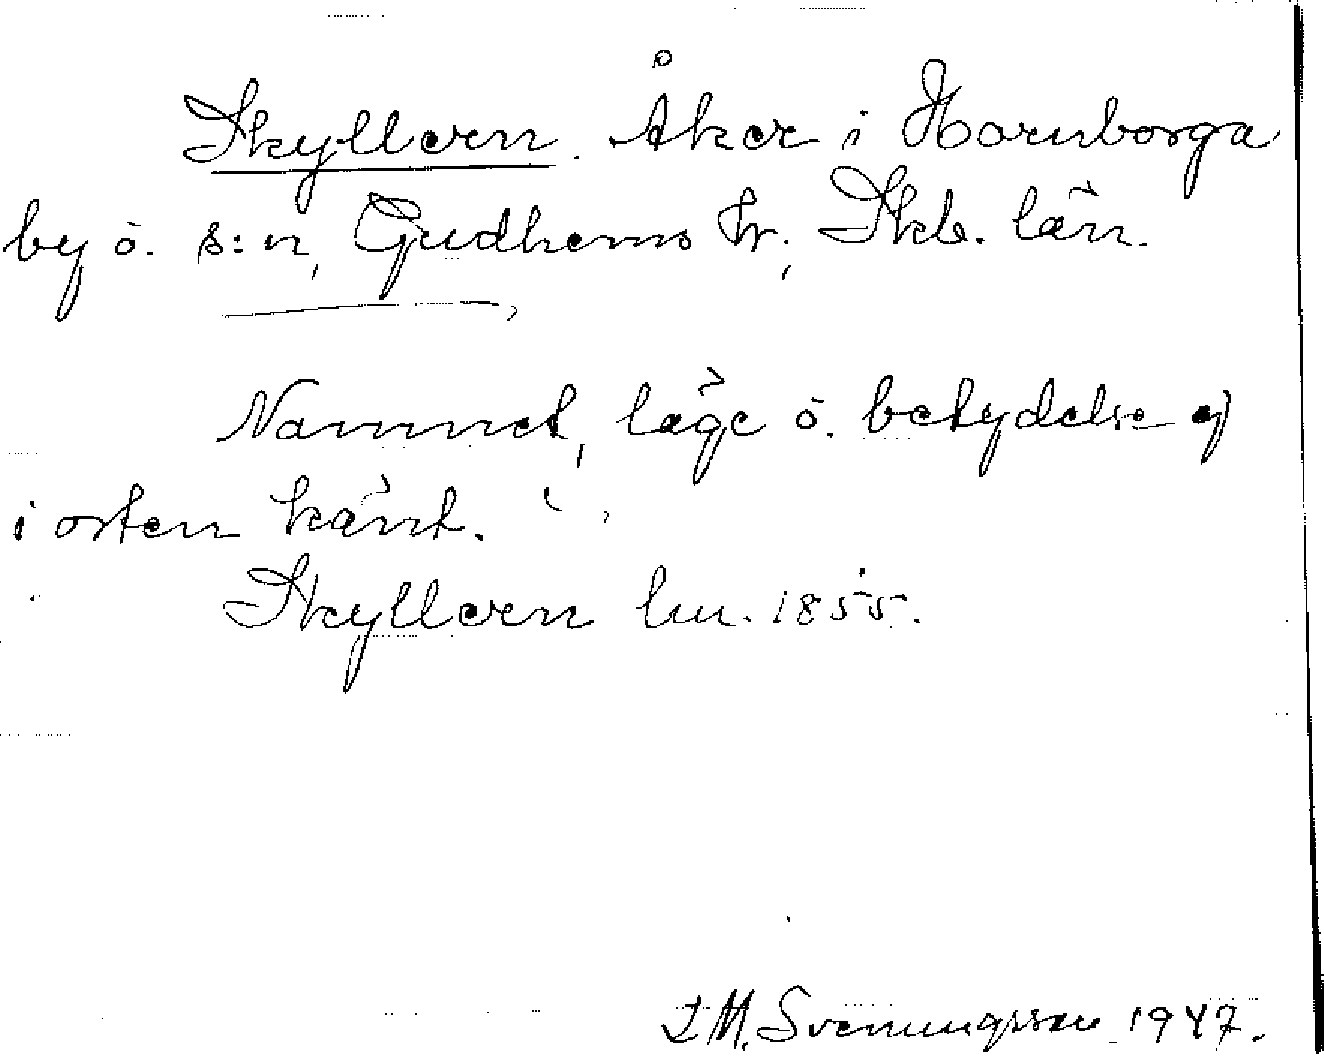 Skyllern. Åker i Hornborga
by o. s:n, Gudhems hr., Skb. län.
Namnet, läge o. betydelse ej
i orten känt.
Skyllern lm. 1855.
L M. Svenungsson 1947.